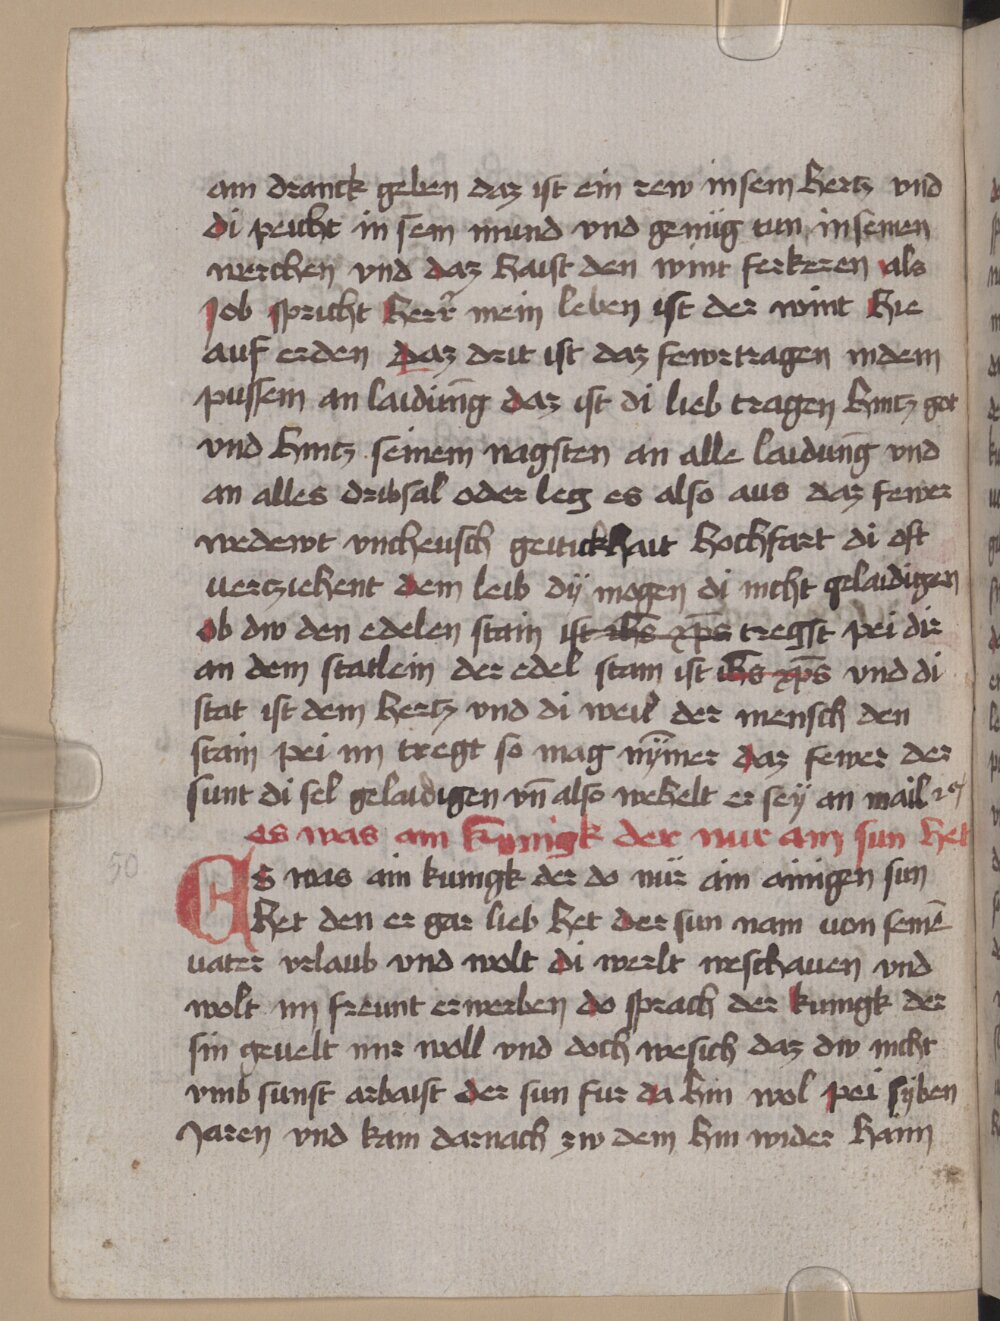 ain dranck geben daz ist ein rew in sem hertz vnd
di peicht in sein mund vnd genüg tun in seinen
werchen vnd daz haist den wint ferkeren als
Job spricht herr mein leben ist der wint hie
auf erden Daz drit ist daz fewr tragen indem
pussem an laidung̅ daz ist di lieb tragen hintz got
vnd hintz seinem nagsten an alle laidung̅ vnd
an alles dribsal oder leg es also aus daz fewer
wedewt vncheusch geitickhait hochfart di oft
verziehent dem leib dÿ mogen di nicht gelaidigen
ob dw den edelen stain ist ih̅s xp̅s tregst pei dir
an dem statlein der edel stain ist ih̅s xp̅s vnd di
stat ist dem hertz vnd di weil der mensch den
stain pei im tregt so mag nÿ̅mer daz fewer der
sunt di sel gelaidigen vn̅ also wehelt er seÿ an mail
es was ain kunigk der nur ain sun het
50
Es was ain kunigk der do nür ain ainigen sun
het den er gar lieb het der sun nam von seine̅
vater vrlaub vnd wolt di werlt weschauen vnd
wolt im freunt erwerben do sprach der kunigk der
sin gevelt mir woll vnd doch wesich daz dw nicht
vmb sunst arbaist der sun fur da hin wol pei syben
Jaren vnd kam darnach zw dem hin wider haim